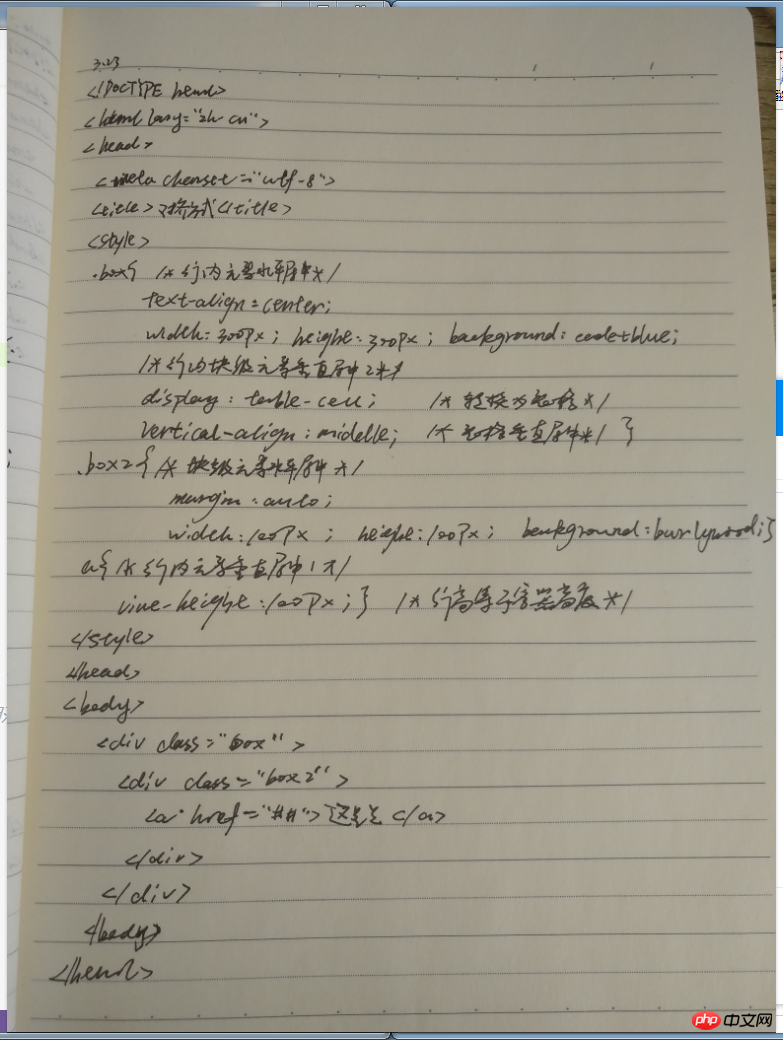 3.23
<!DOCTYPE html>
<html lang="zh-cn">
<head>
<meta charset="utf-8">
<title>对齐方式</title>
<style>
.box{ /*行内元素水平居中*/
text-align:center;
width:300px; height:300px; background:cadetblue;
/*行内块级元素垂直居中2*/
display:table-cell; /*转换为表格*/
vertical-align:middle; /*表格垂直居中*/ }
.box2{ /*块级元素水平居中*/
margin:auto;
width:100px; height:100px; background:burlywood;}
a{ /*行内元素垂直居中1*/
line-height:100px;} /*行高等于容器高度*/
</style>
</head>
<body>
<div class="box">
<div class="box2">
<a href="##">这是</a>
</div>
</div>
</body>
</html>
php 中文网